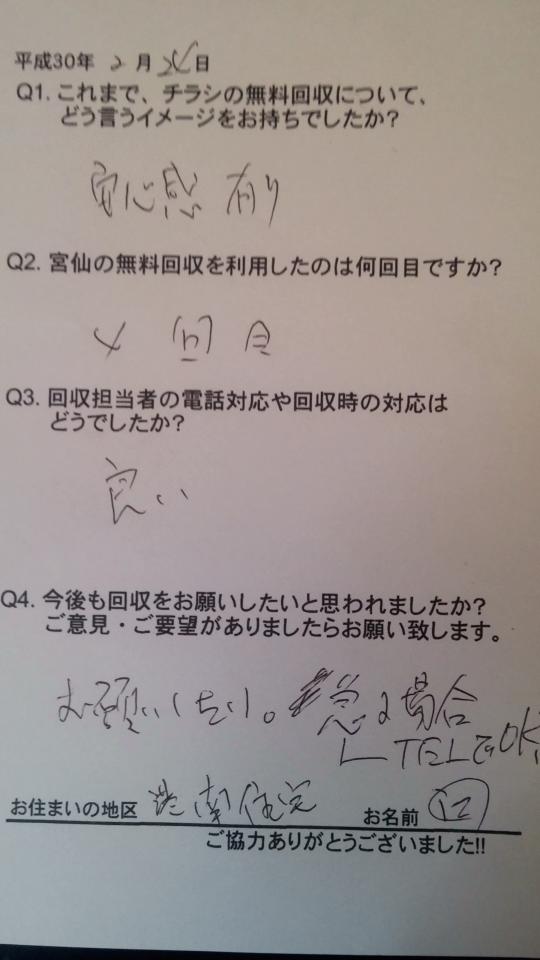 平成30年 2月24日
Q1. これまで、チラシの無料回収について、
どう言うイメージをお持ちでしたか?
安心感 有り
Q2. 宮仙の無料回収を利用したのは何回目ですか?
4 回目
Q3. 回収担当者の電話対応や回収時の対応は
どうでしたか?
良い
Q4. 今後も回収をお願いしたいと思われましたか?
ご意見・ご要望がありましたらお願い致します。
お願いしたい。急な場合
TELでOK
お住まいの地区 港南住宅 お名前
ご協力ありがとうございました!!